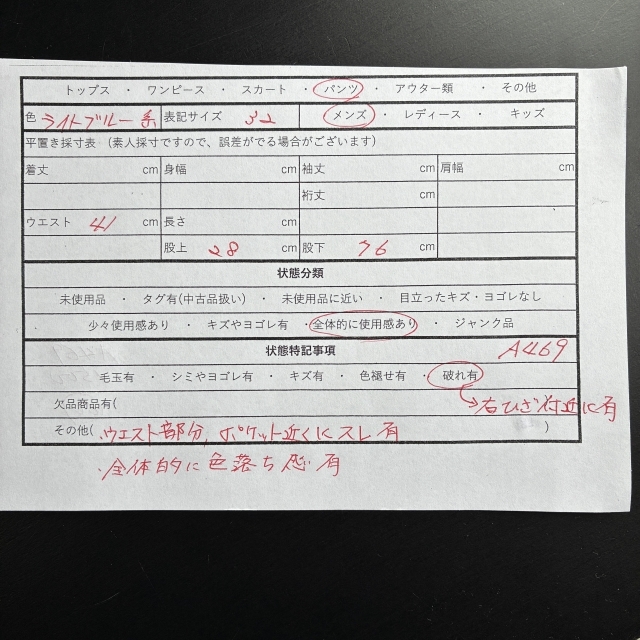 トップス ・ ワンピース ・ スカート ・ パンツ ・ アウター類 ・ その他
色 ライトブルー系 表記サイズ 32 メンズ ・ レディース ・ キッズ
平置き採寸表 （素人採寸ですので、誤差がでる場合がございます）
着丈 cm 身幅 cm 袖丈 cm 肩幅 cm
裄丈 cm
ウエスト 41 cm 長さ cm
股上 28 cm 股下 76 cm
状態分類
未使用品 ・ タグ有(中古品扱い) ・ 未使用品に近い ・ 目立ったキズ・ヨゴレなし
少々使用感あり ・ キズやヨゴレ有 ・ 全体的に使用感あり ・ ジャンク品
状態特記事項 A469
毛玉有 ・ シミやヨゴレ有 ・ キズ有 ・ 色褪せ有 ・ 破れ有
→右ひざ付近に有
欠品商品有(
その他( ・ウエスト部分, ポケット近くにスレ有 )
・全体的に色落ち感有